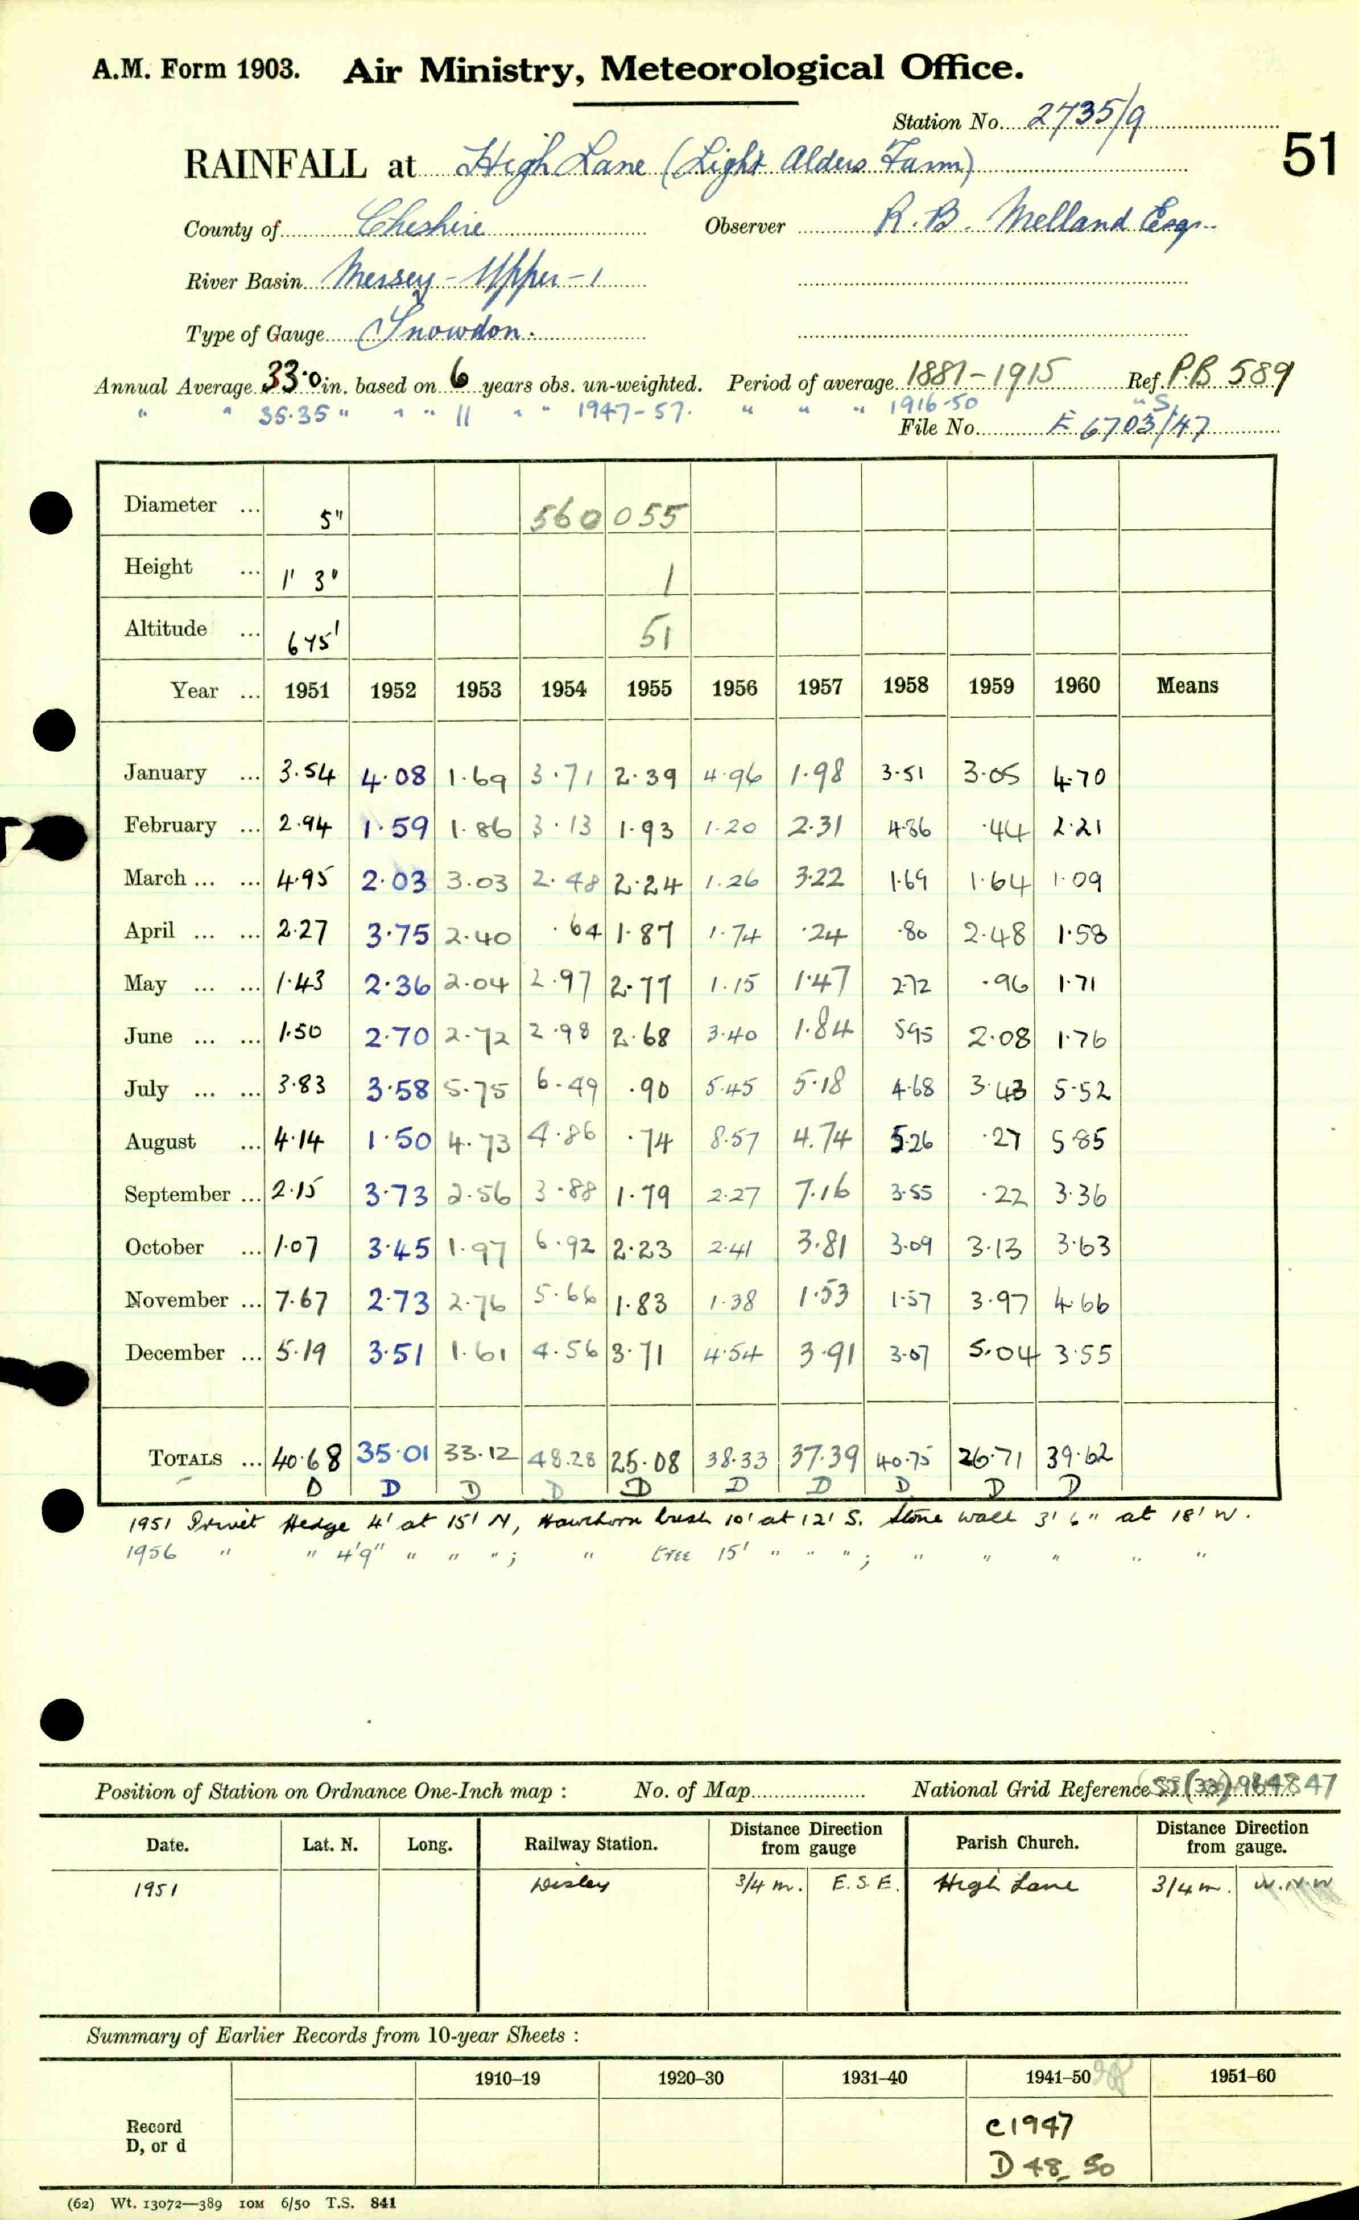 A.M. Form 1903. Air Ministry, Meteorological Office.
Station No. 2735/9
51
RAINFALL at High Lane (Light Alders Farm)
County of Cheshire Observer R. B. Melland Esq.
River Basin Mersey-Upper-1
Type of Gauge Snowdon.
Annual Average 33.0 in. based on 6 years obs. un-weighted. Period of average 1881-1915 Ref. P.B 589
" " 35.35 " " " 11 " " 1947-57. " " " 1916-50 " S.
File No. E 6703/47
Diameter ... 5" 560 055
Height ... 1' 3" 1
Altitude ... 675' 51
Year ... 1951 1952 1953 1954 1955 1956 1957 1958 1959 1960 Means
January ... 3.54 4.08 1.69 3.71 2.39 4.96 1.98 3.51 3.05 4.70
February ... 2.94 1.59 1.86 3.13 1.93 1.20 2.31 4.36 .44 2.21
March ... ... 4.95 2.03 3.03 2.48 2.24 1.26 3.22 1.69 1.64 1.09
April ... ... 2.27 3.75 2.40 .64 1.87 1.74 .24 .80 2.48 1.58
May ... ... 1.43 2.36 2.04 2.97 2.77 1.15 1.47 2.72 .96 1.71
June ... ... 1.50 2.70 2.72 2.98 2.68 3.40 1.84 5.95 2.08 1.76
July ... ... 3.83 3.58 5.75 6.49 .90 5.45 5.18 4.68 3.43 5.52
August ... 4.14 1.50 4.73 4.86 .74 8.57 4.74 5.26 .27 5.85
September ... 2.15 3.73 2.56 3.88 1.79 2.27 7.16 3.55 .22 3.36
October ... 1.07 3.45 1.97 6.92 2.23 2.41 3.81 3.09 3.13 3.63
November ... 7.67 2.73 2.76 5.66 1.83 1.38 1.53 1.57 3.97 4.66
December ... 5.19 3.51 1.61 4.56 3.71 4.54 3.91 3.07 5.04 3.55
TOTALS ... 40.68 35.01 33.12 48.28 25.08 38.33 37.39 40.75 26.71 39.62
D D D D D D D D D D
1951 Privet Hedge 4' at 15' N, Hawthorn bush 10' at 12' S. Stone wall 3' 6" at 18' W.
1956 " " 4'9" " " "; " tree 15' " " "; " " " " "
Position of Station on Ordnance One-Inch map : No. of Map National Grid Reference
Date. Lat. N. Long. Railway Station. Distance from gauge Direction Parish Church. Distance from gauge. Direction
1951 Disley 3/4 m. E.S.E. High Lane 3/4 m. W.N.W
Summary of Earlier Records from 10-year Sheets :
1910–19 1920–30 1931–40 1941–50 1951–60
Record D, or d
C1947
D 48, 50
(62) Wt. 13072—389 10M 6/50 T.S. 841